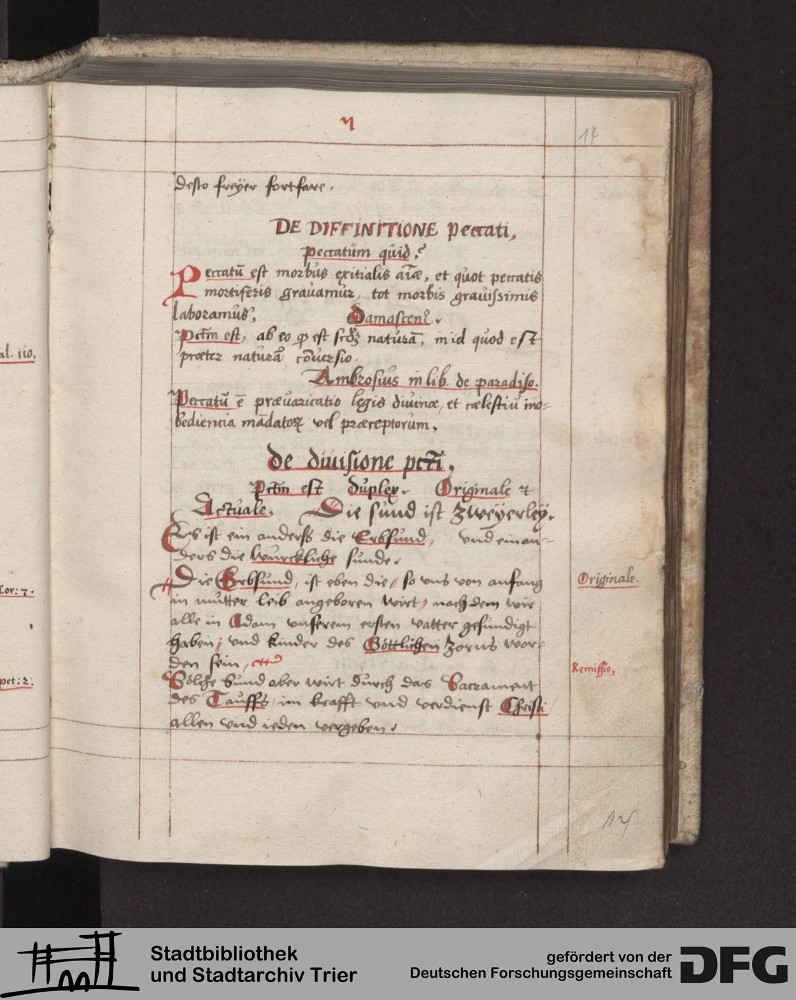 desto freÿer fortfare.
DE DIFFINITIONE peccati,
peccatum quid?
Peccatū est morbus exitialis aīae, et quot peccatis
mortiferis gravamur, tot morbis gravissimis
laboramus,
Damascen9.
Pctm̄ est, ab eo qͥ est scdȝ naturā, in id quod est
praeter naturā cōuersio.
Ambrosius in lib. de paradiso.
Peccatū ē praeuaricatio legis diuinae, et caelestiū ino=
bediencia mādatoꝝ vel praeceptorum.
de diuisione pcti.
Pctm̄ est duplex. Originale et
Actuale. Die sünd ist Zweÿerleÿ.
Es ist ein anderß die Erbsund, vnd ein an=
ders die wurckliche sunde.
Die Erbsund, ist eben die, so vns von anfang
in mutter leib angeboren wirt, nach dem wir
alle in Adam vnserem ersten vatter gesundigt
haben, vnd kinder des Göttlichen Zorns wor=
den sein, etc
Sölche Sund aber wirt durch das Sacrament
des Tauffs, im krafft vnd verdienst Christi
allen vnd ieden vergeben.
Originale.
Remissio,
al. 110.
Cor: 7.
pet: 2:
Stadtbibliothek
und Stadtarchiv Trier
gefördert von der
Deutschen Forschungsgemeinschaft
DFG